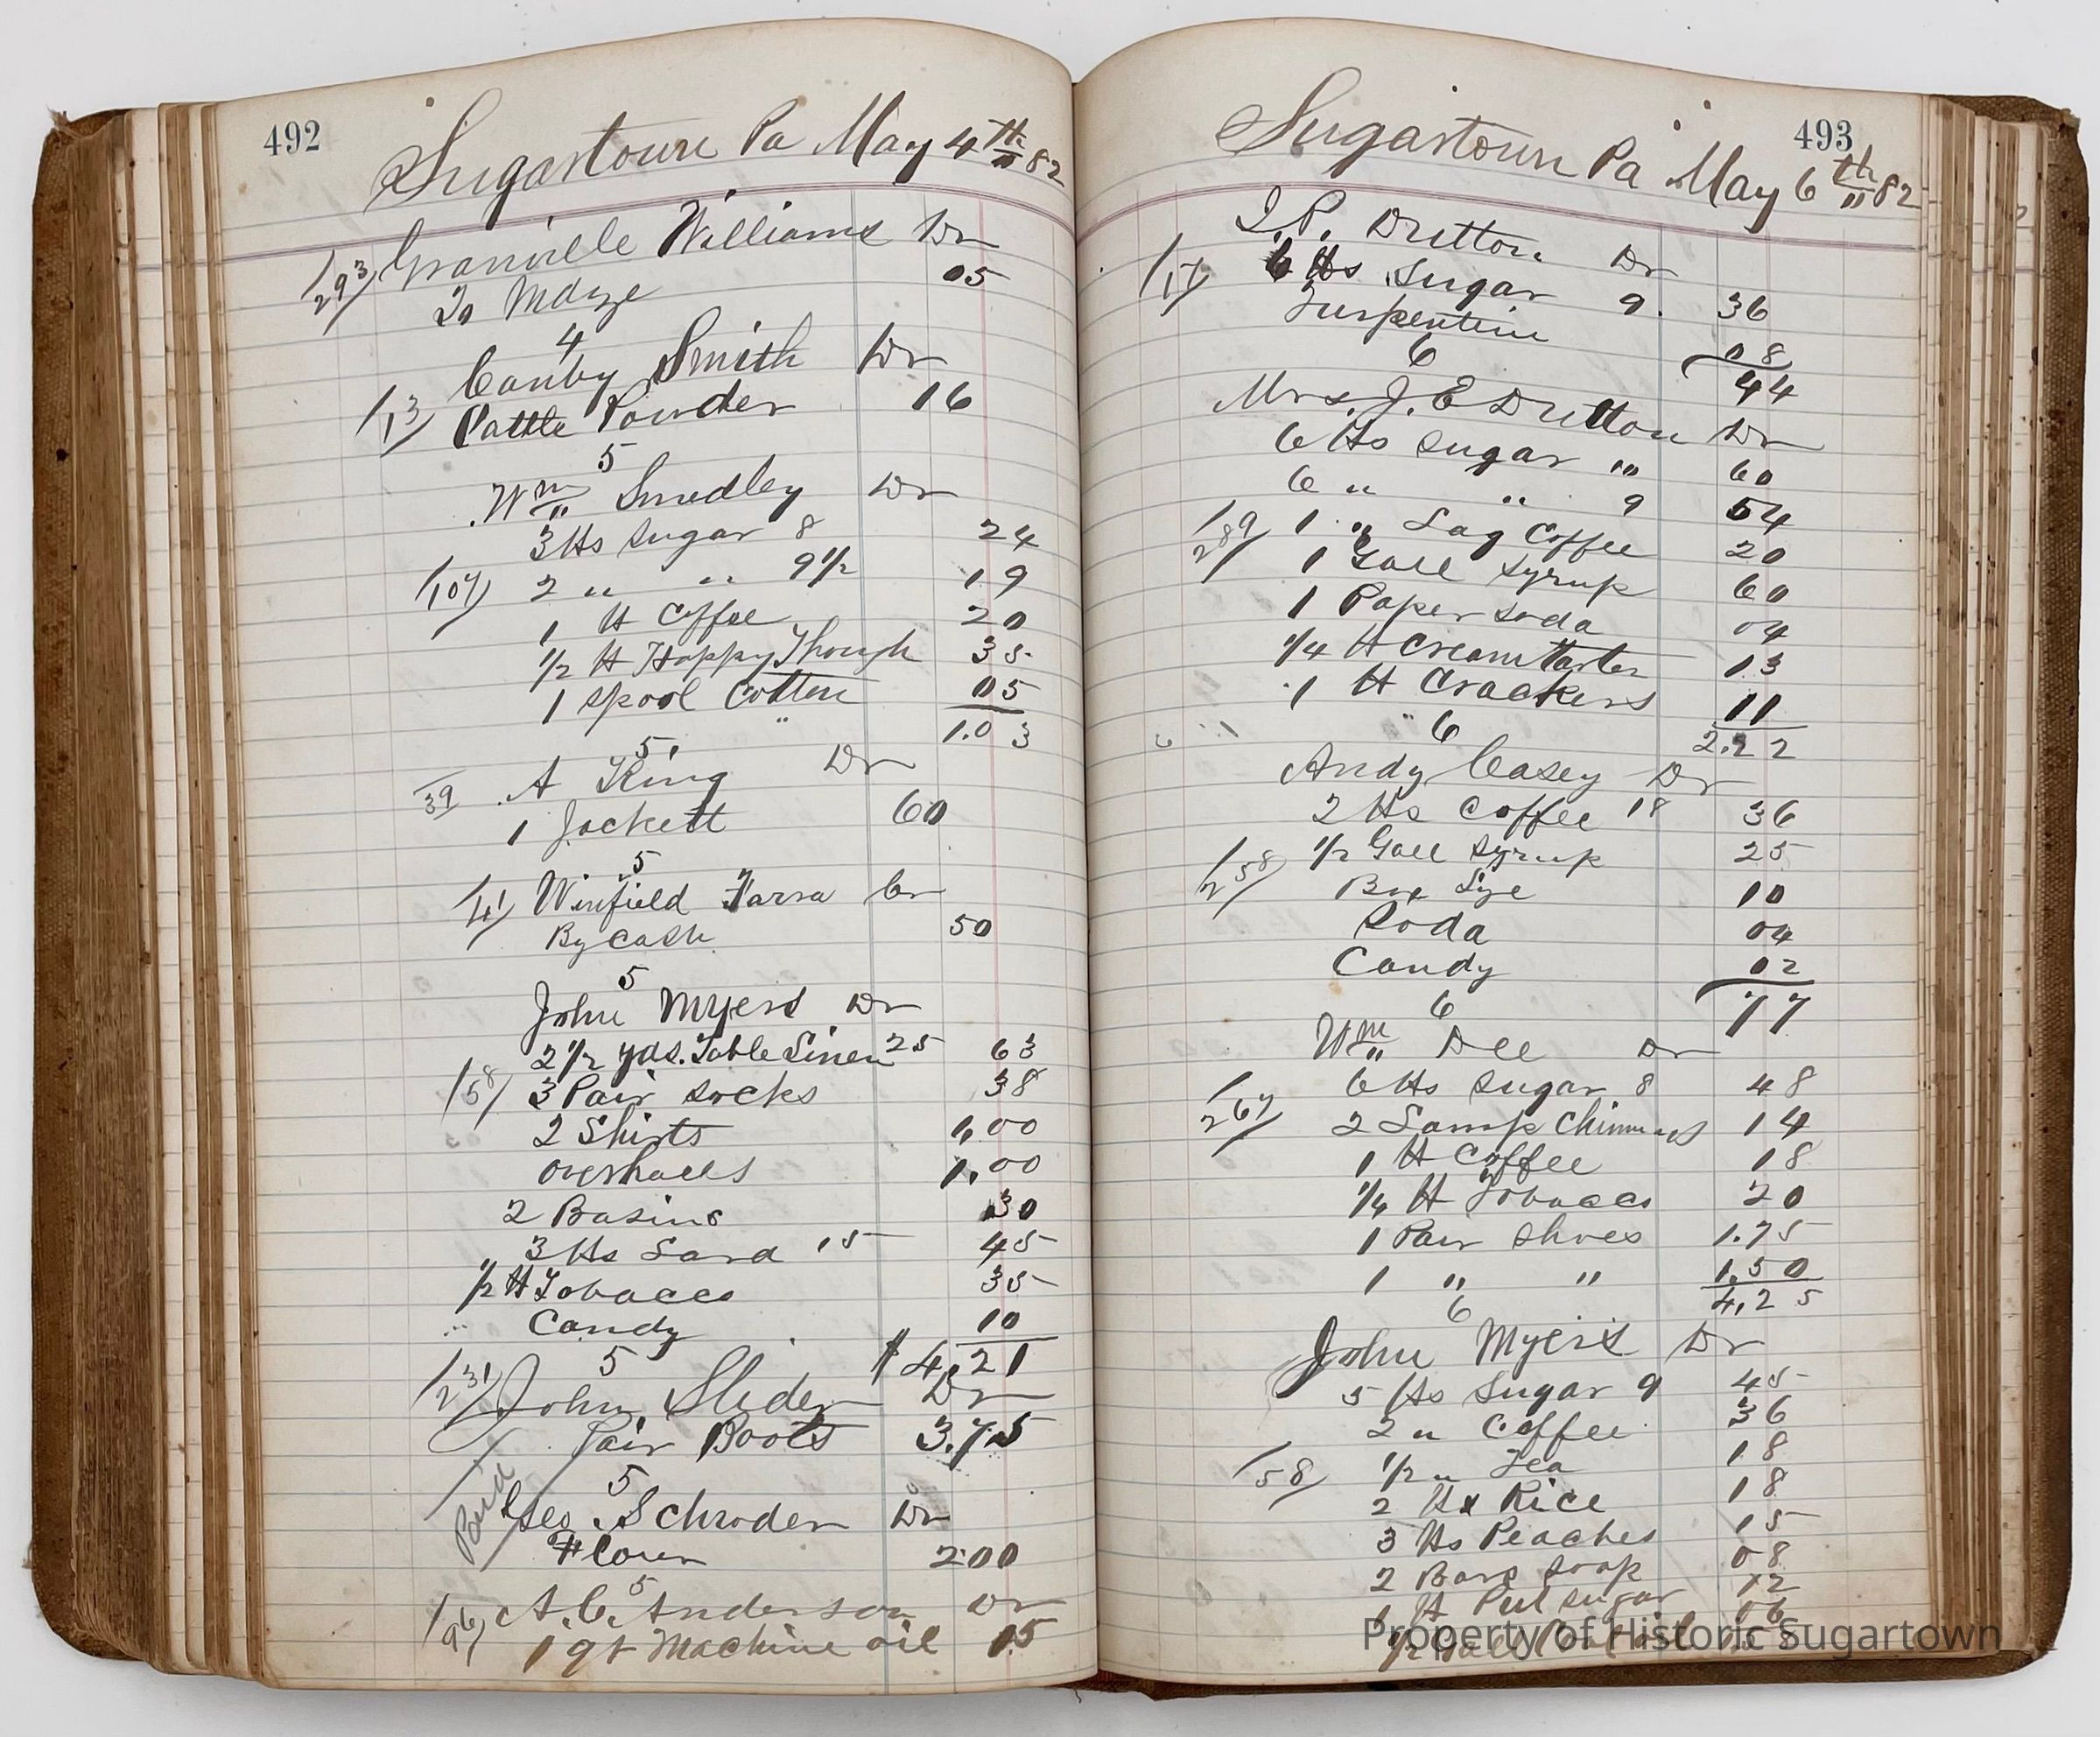 492
Sugartown Pa May 4th 82
Granville Williams Dr
293
To Mdze 05
4
Canby Smith Dr
13 Cattle Powder 16
5
Wm Smedley Dr
3 lbs Sugar 8 24
107 2 " " 9 1/2 19
1 lb Coffee 20
1/2 lb Happy Though 35
1 Spool Cotten 05
1.03
5
39 A King Dr
1 Jackett 60
5
41 Winfield Farra Cr
By Cash 50
5
John Myers Dr
2 1/2 yds. Table Linen 25 63
58 3 Pair Socks 38
2 Shirts 1,00
Overhalls 1.00
2 Basins 30
3 lbs Lard 15 45
1/2 lb Tobacco 35
Candy 10
5 $4,21
231 John Slider Dr
Pair Boots 3.75
5
Paid
Geo. Schroder Dr
Flour 2.00
5
96 A. C. Anderson Dr
1 qt Machine oil 15
493
Sugartown Pa May 6th 82
J. P. Dutton Dr
17 lbs Sugar 9. 36
Turpentine 08
6 44
Mrs. J. E Dutton Dr
6 lbs Sugar 10 60
6 " " 9 54
289 1 " Lag Coffee 20
1 Gall Syrup 60
1 Paper Soda 04
1/4 lb Cream Tarter 13
1 lb Crackers 11
6 2.22
Andy Casey Dr
2 lbs Coffee 18 36
258 1/2 Gall Syrup 25
Box Lye 10
Soda 04
Candy 02
6 77
Wm Dee Dr
6 lbs Sugar 8 48
267 2 Lamp Chimneys 14
1 lb Coffee 18
1/4 lb Tobacco 20
1 Pair Shoes 1.75
1 " " 1.50
6 4,25
John Myers Dr
5 lbs Sugar 9 45
2 " Coffee 36
58 1/2 " Tea 18
2 lbs Rice 18
3 lbs Peaches 15
2 Bars Soap 08
1 lb Pul Sugar 12
1/2 Gall Coal oil
Property of Historic Sugartown